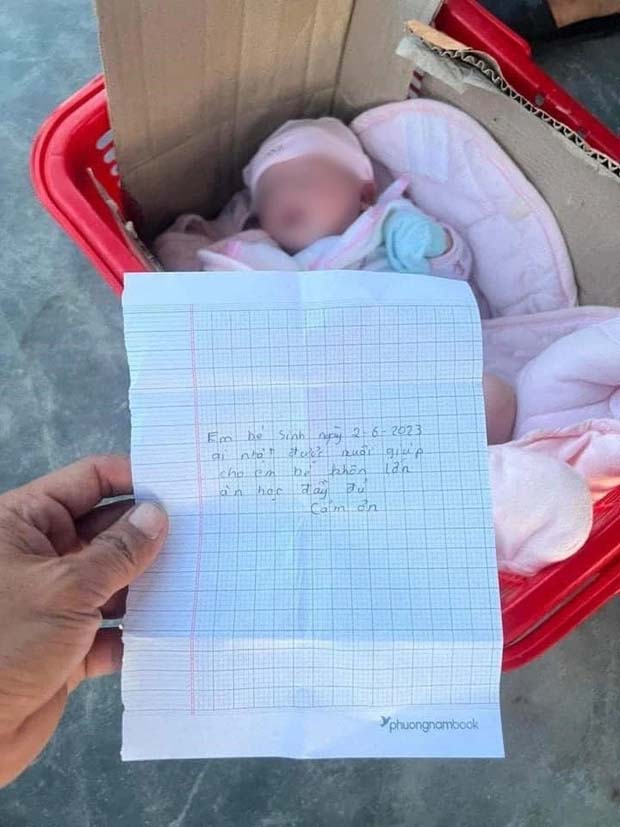 Em bé sinh ngày 2-6-2023
ai nhặt được nuôi giúp
cho em bé khôn lớn
ăn học đầy đủ
Cảm ơn
phuongnambook